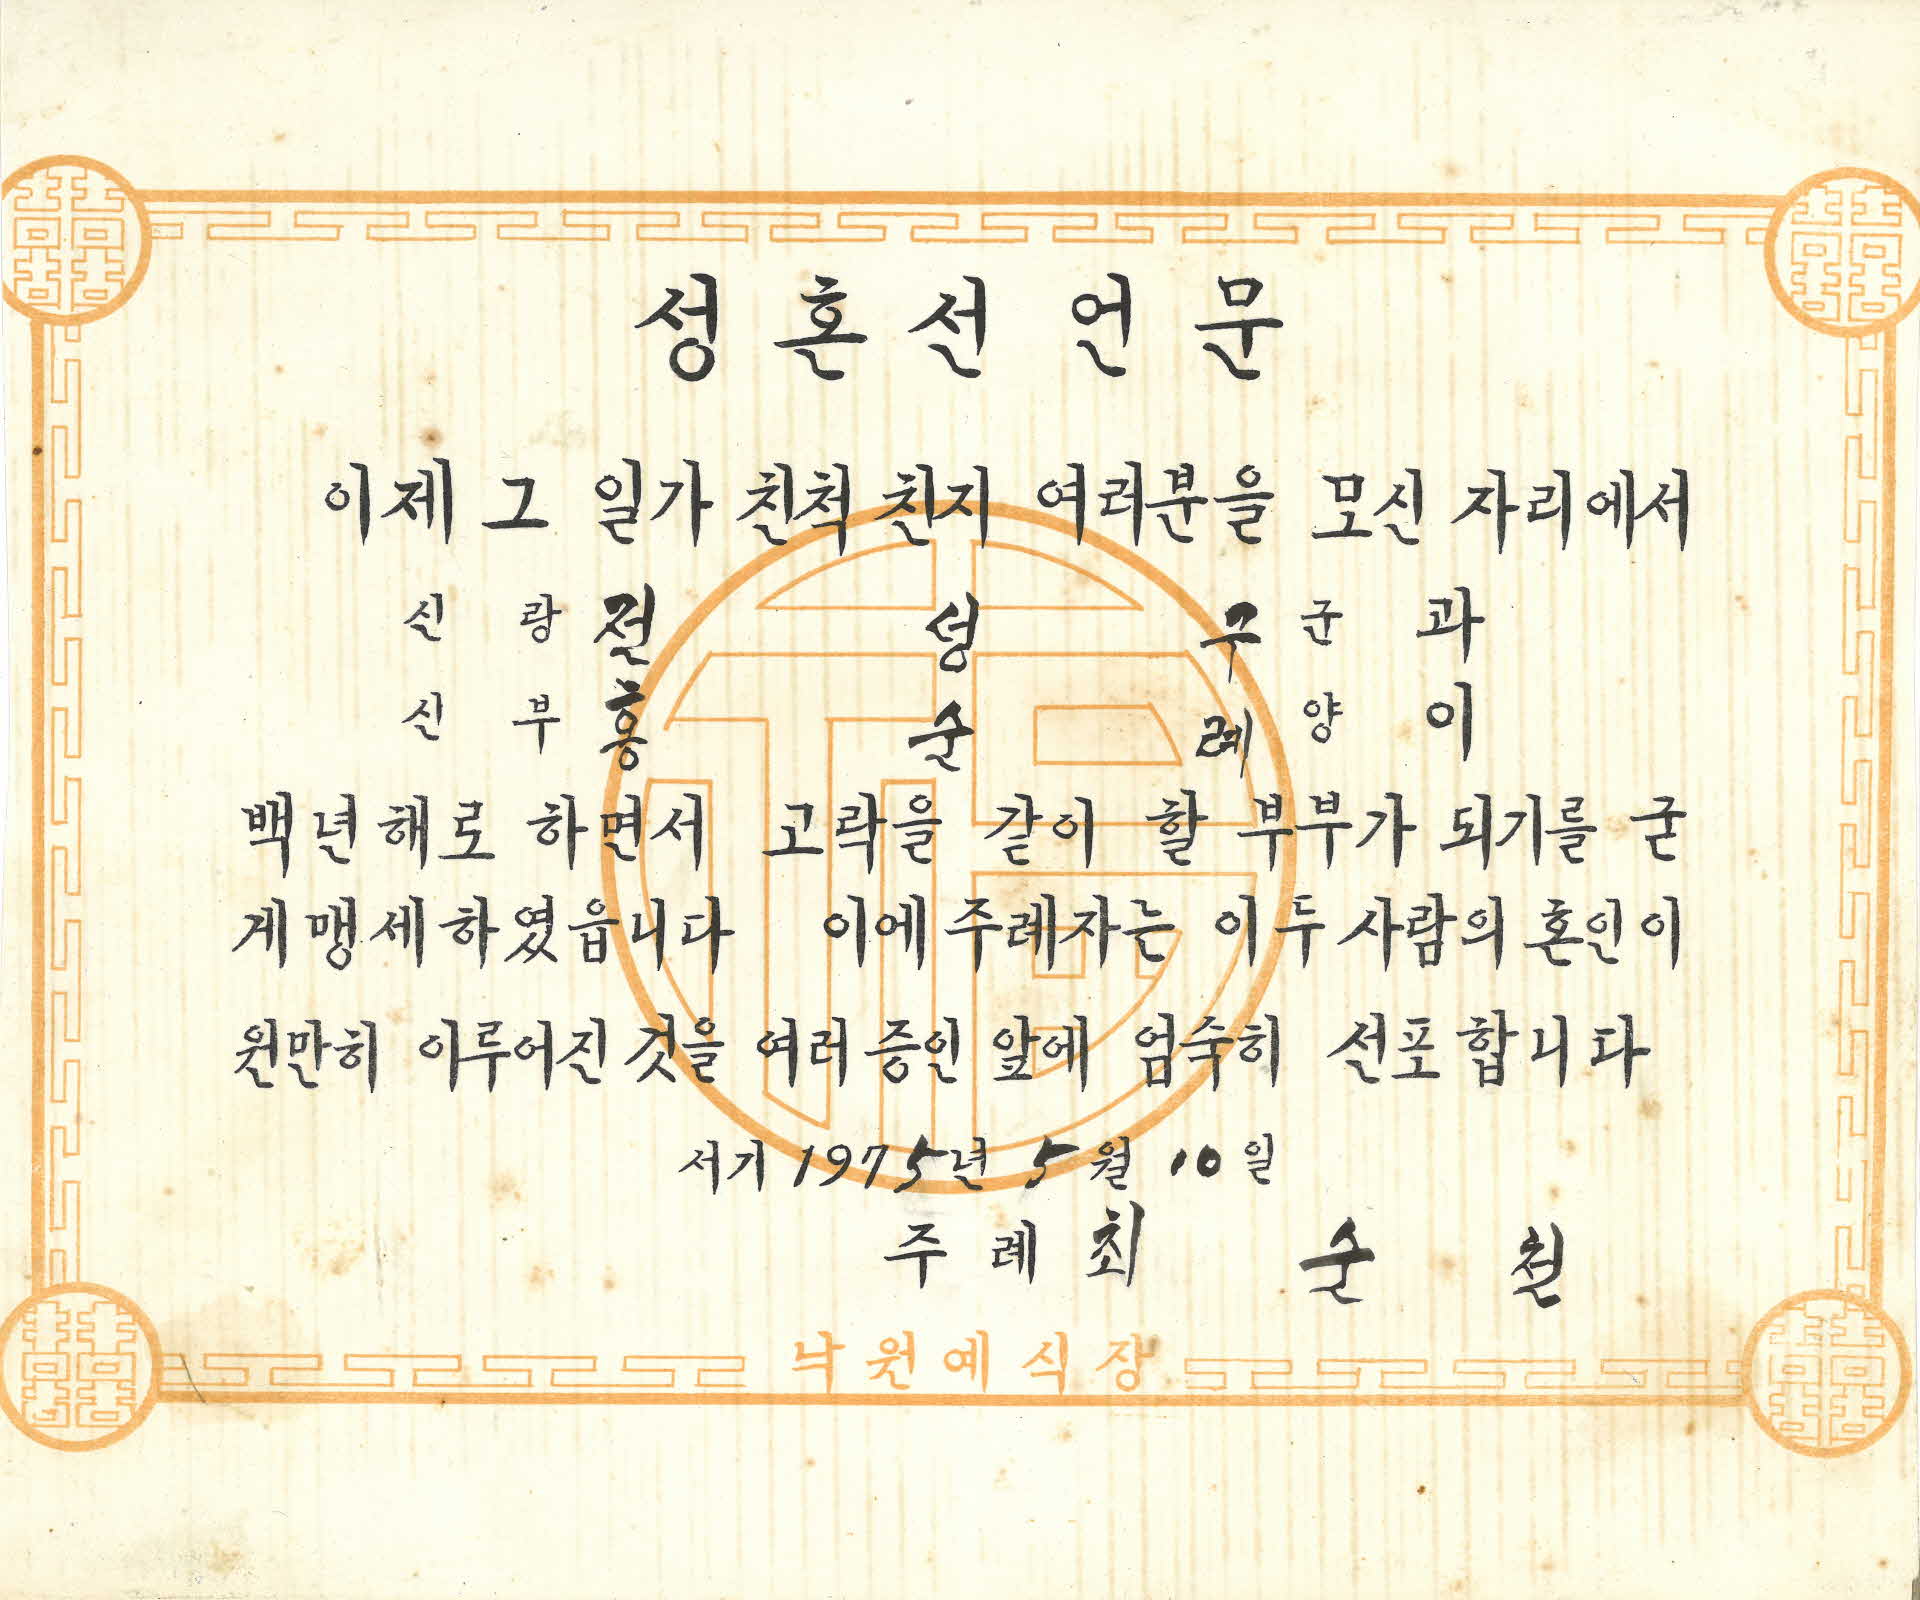 성혼선언문
이제 그 일가 친척 친지 여러분을 모신 자리에서
신랑 전성구 군과
신부 홍순례 양이
백년해로 하면서 고락을 같이 할 부부가 되기를 굳
게 맹세하였읍니다 이에 주례자는 이 두 사람의 혼인이
원만히 이루어진 것을 여러 증인 앞에 엄숙히 선포합니다
서기 1975년 5월 10일
주례 최순철
낙원예식장